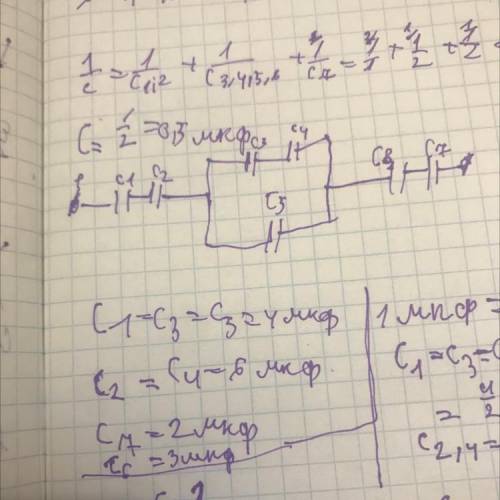 1/c = 1/C1,2 + 1/C3,4,5,6 + 1/C7 = 1/1 + 1/2 + 1/2
C = 1/2 = 0,5 мкф
C3 C4
C1 C2 C8 C7
C5
C1=C3=C3=4 мкф
C2 = C4 = 6 мкф
C7 = 2 мкф
C6 = 3 мкф
1 мкф =
C1=C3=C
= 4/2
C2,4=